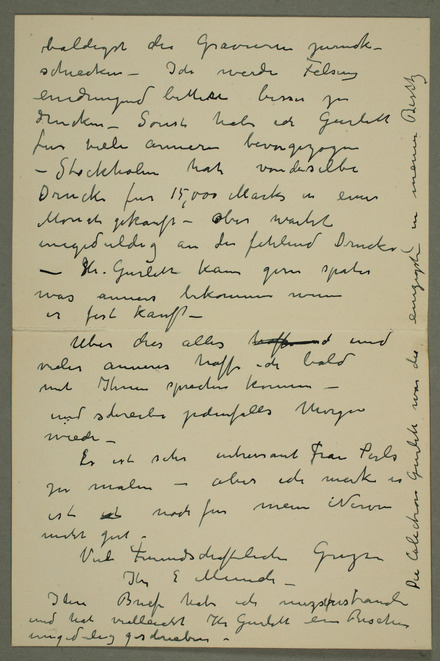 baldigst die Gravuren zurück-
schicken – Ich werde Felsing
eindringend bitten besser zu
drucken – Sonst habe ich Gurlitt
für viele anneren bevorgezogen
– Stockholm hat von derselbe
Drucke für 15,000 Marks in einer
Monat gekauft – aber wartet
ungeduldig an die fehlend Drucke
– Hr. Gurlitt kann gern später
was anners bekommen wenn
er fest kauft –
Über dies alles und
vieles anneres hoffe ich bald
mit Ihnen sprechen können –
und schreibe jedenfalls Morgen
wieder –
Es ist sehr interessant Frau Perls
zu malen – aber ich merke es
ist noch für mein Nerven
nicht gut –
Viel Freundschaftliche Grüsse
Ihr E Munch –
Ihren Brief habe ich missverstanden
und hat vielleicht Hr Gurlitt ein Bischen
ungeduldig geschrieben –
Die Collection Gurlitt war die einzigste in meinem Besitz